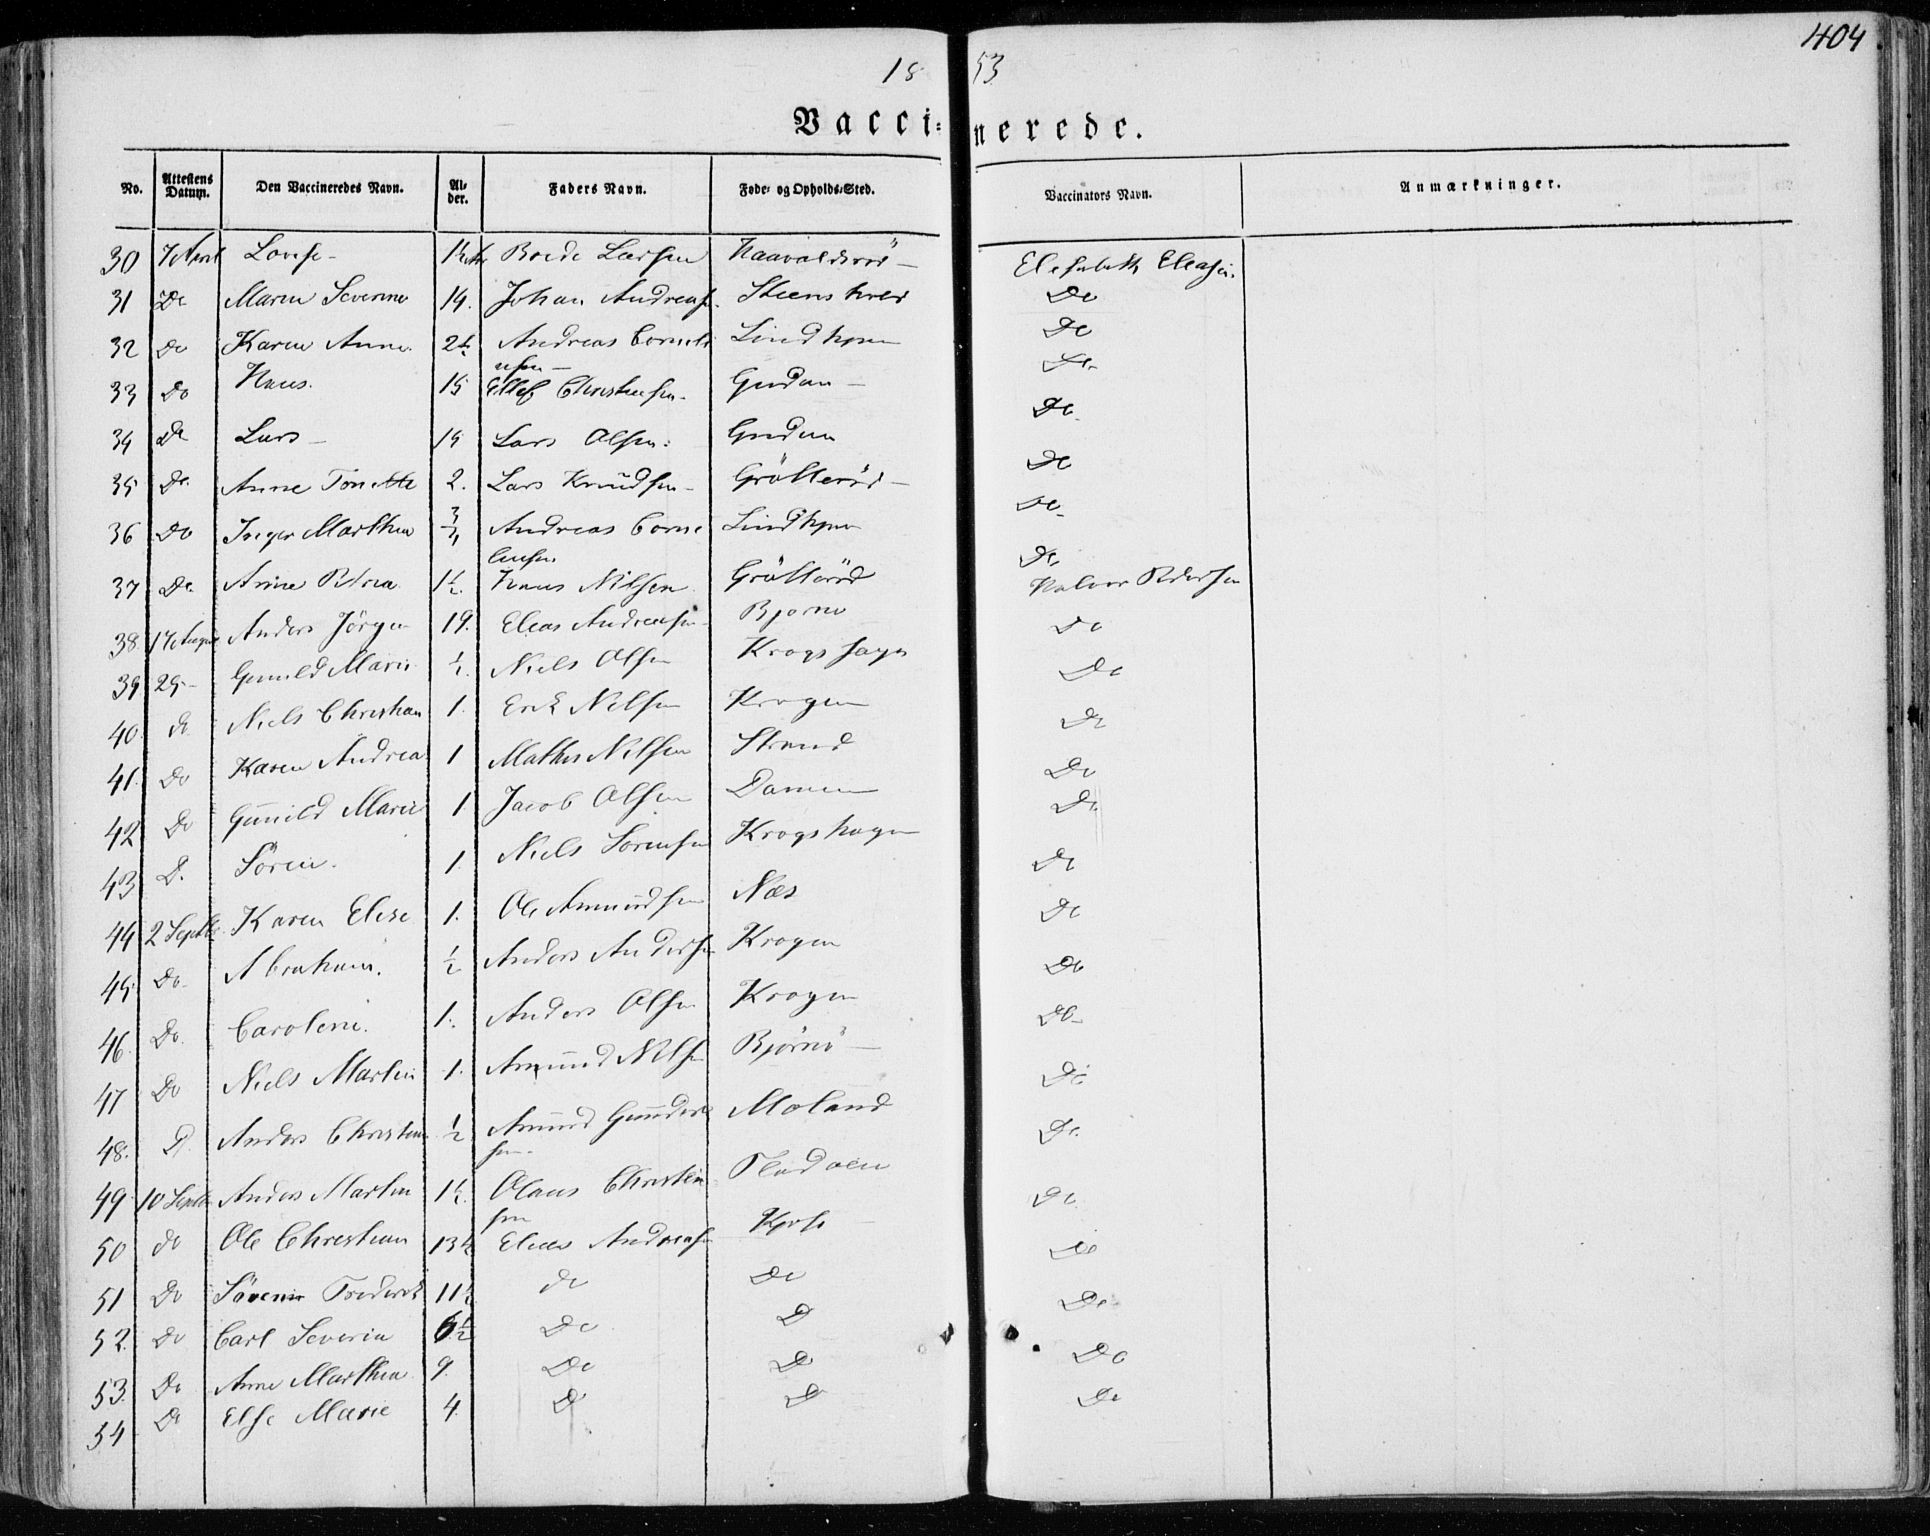 404
1853
Vaccinerede.
No. Attestens Datum. Den Vaccineredes Navn. Alder. Faders Navn. Føde- og Opholds-Sted. Vaccinators Navn. Anmærkninger.
30 7 April Lovise - Boede Larsen Elisabeth Eleasen.
31 Do Maren Severine 14. Johan Andreasen. Do
32 Do Karen Anne. Andreas Corneliusen - Lindkjen Do
33 Do Hans. 15 Ellef Christensen. Gudan - Do
34 Do Lars - Lars Olsen. Gudan Do
35 Do Anne Tonette 2. Lars Knudsen - Grötteröd - Do
36 Do Inger Marthea 3/4 Andreas Corneliusen Lindkjen Do
37 Do Anne Petrea 1½. Hans Nilsen Grötteröd Do
38. 17 August Anders Jörgen 19. Eleas Andreasen Bjørnø Halvor Pedersen
39 29 - Gunild Marie ½. Niels Olsen Krogshagen Do
40. do Niels Christian 1. Erik Nilsen Krogen Do
41. Do Karen Andrea 1 Mathis Nilsen Strand Do
42 Do Gunild Marie 1. Jacob Olsen Dammen Do
43 D. Sören. 1. Niels Sörensen Krogshagen Do
44 2 Septbr. Karen Elise 1. Ole Amundsen Næs Do
45. Do. Abraham. ½ Anders Andersen Krogen Do
46. Do. Caroline. 1. Anders Olsen Krogen Do
47 Do Niels Martin 1. Amund Nilsen Bjørnø - Do -
48. D. Anders Christian ½ Amund Gundersen. Moland Do
49 10 Septbr Anders Martin 1½. Olaus Christensen Do.
50 do Ole Christian 13½ Eleas Andreasen Do
51 Do Frederik 11½ do Do Do
52. Do Carl Severin 6½ Do D Do
53. Do Anne Marthea 9. Do D Do
54 Do Else Marie 4. D D Do